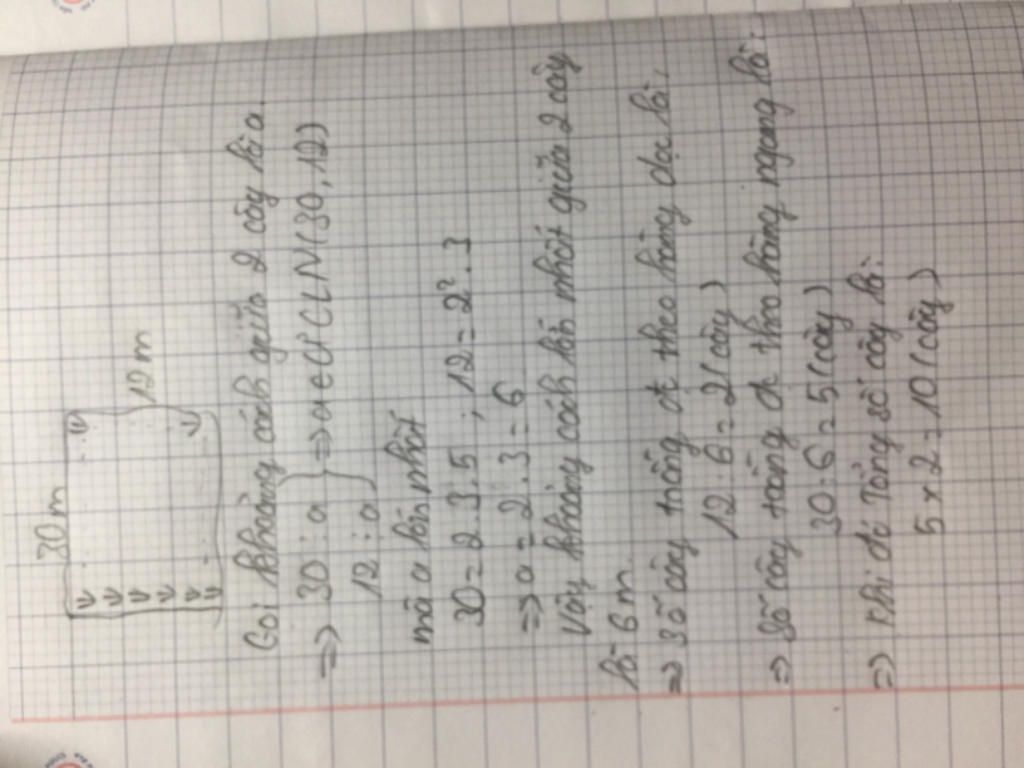 30m
12m
Gọi khoảng cách giữa 2 cây là a.
=> 30 ⋮ a
12 ⋮ a } => a ∈ ƯCLN(30,12)
mà a lớn nhất
30 = 2.3.5 ; 12 = 2².3
=> a = 2.3 = 6
Vậy khoảng cách lớn nhất giữa 2 cây
là 6m.
=> Số cây trồng đc theo hàng dọc là:
12 : 6 = 2 (cây)
=> Số cây trồng đc theo hàng ngang là:
30 : 6 = 5 (cây)
=> Khi đó Tổng số cây là:
5 x 2 = 10 (cây)